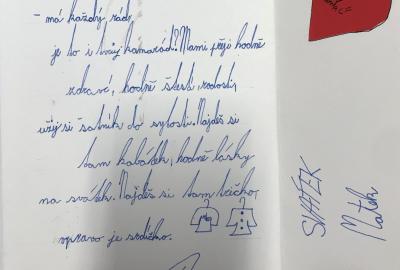 - má každý rád,
je to i tvůj kamarád? Mami přeji hodně
zdraví, hodně štěstí, radosti,
užij si šatník do sytosti. Najdeš si
tam kabátek, hodně lásky
na svátek. Najdeš si tam tričko,
vpravo je srdíčko.
SVÁTEK